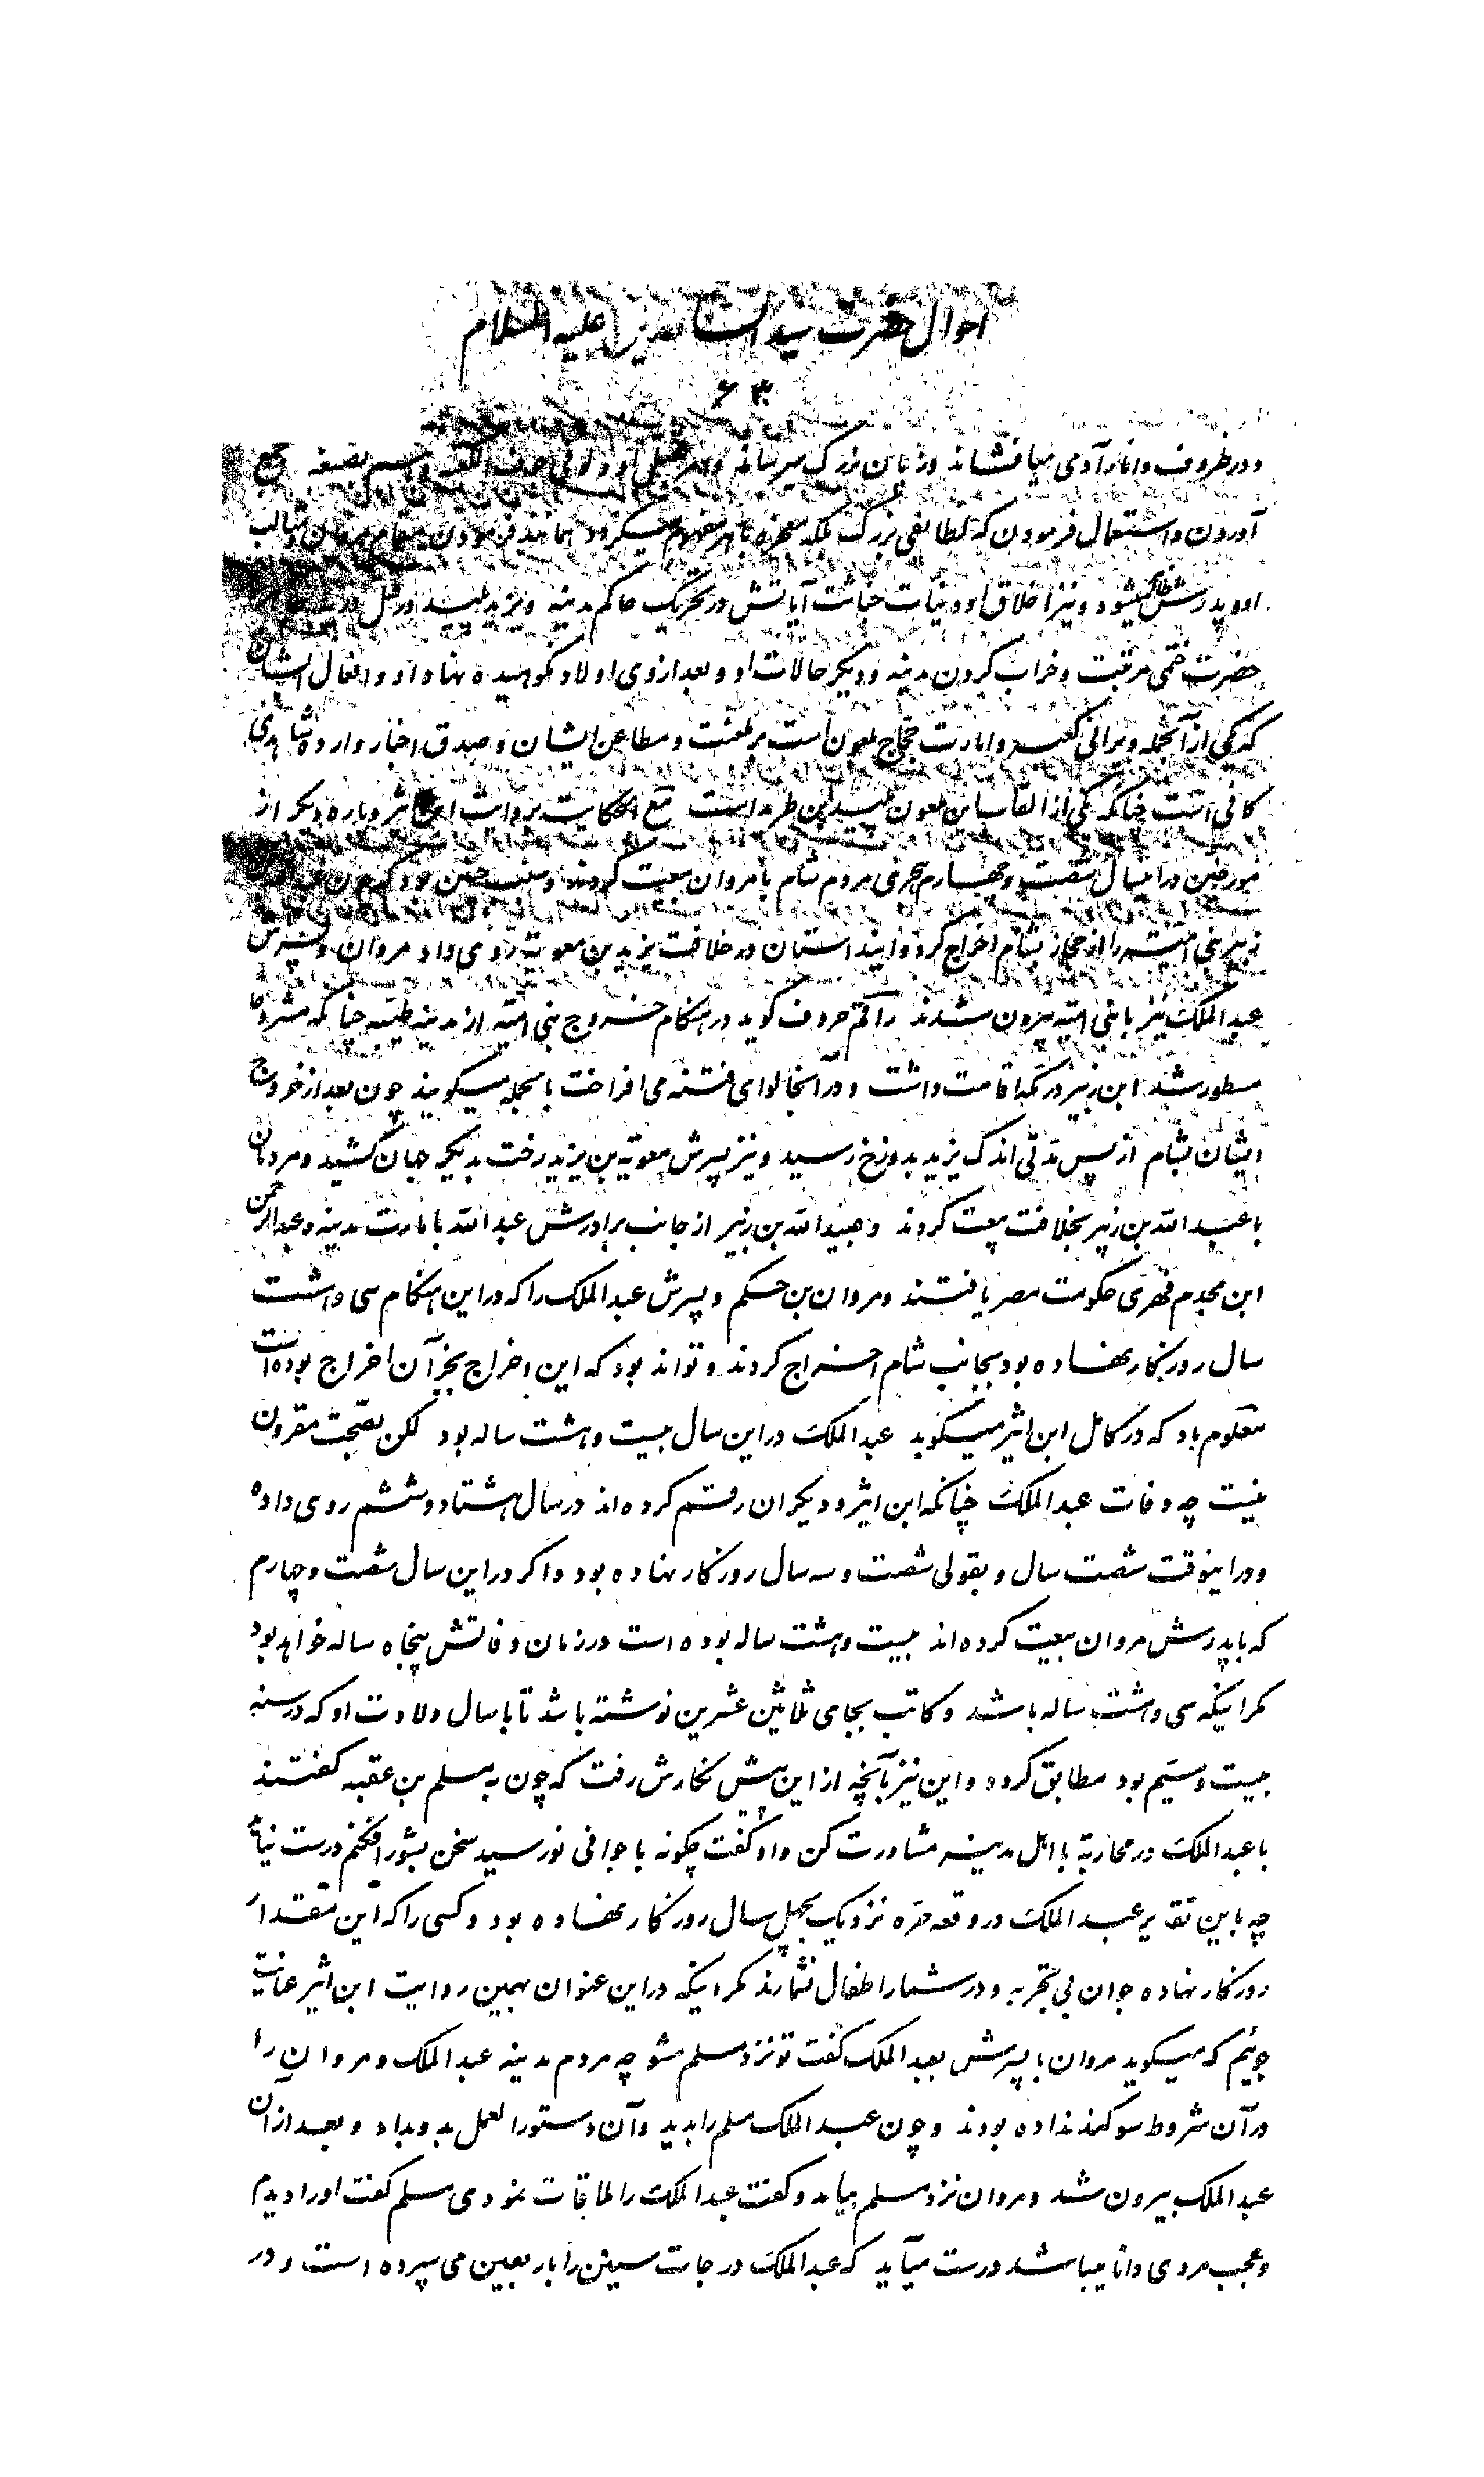 احوال حضرت سید الساجدین علیه السلام
۶۳
و در ظروف و انار آدمی میافشاند و زیان بزرک میرساند و بصیغه جمع
آوردن و استعمال فرمودن که بلطایفی بزرک بلکه معجزه باهر مفهوم میکردد همانند
او و پدرش میشود و نیز اخلاق او و نیات خباثت آیاتش در تحریک حاکم مدینه و یزید پلید در قتل
حضرت ختمی مرتبت و خراب کردن مدینه و دیکر حالات او و بعد از وی اولاد نکوهیده نهاد او و افعال ایشان
که یکی از آنجمله ویرانی کعبه و امارت حجاج ملعون است بر لعنت و مطاعن ایشان و صدق اخبار وارده شاهدی
کافی است چنانکه یکی از القاب این ملعون است مع الحکایت بروایت ابن اثیر و پاره دیکر از
مورخین در اینسال شصت و چهارم هجری مردم شام با مروان بیعت کردند و سبب چنین بود که چون
زبیر بنی امیه را از حجاز بشام اخراج کرد و این داستان در خلافت یزید بن معویه روی داد مروان و پسرش
عبد الملک نیز با بنی امیه بیرون شدند راقم حروف کوید در هنکام خروج بنی امیه از مدینه طیبه چنانکه مشروحا
مسطور شد ابن زبیر در مکه اقامت داشت و در آنجا لوای فتنه می افراخت بالجمله میکویند چون بعد از خروج
ایشان بشام از پس مدتی اندک یزید بدوزخ رسید و نیز پسرش معویة بن یزید رخت بدیکر جهان کشید و مردمان
با عبد الله بن زبیر بخلافت بیعت کردند و عبید الله بن زبیر از جانب برادرش عبد الله بامارت مدینه و عبد الرحمن
ابن مجدم فهری حکومت مصر یافتند و مروان بن حکم و پسرش عبد الملک را که در این هنکام سی و هشت
سال روزکار نهاده بود بجانب شام اخراج کردند و تواند بود که این اخراج بجز آن اخراج بوده است
معلوم باد که در کامل ابن اثیر میکوید عبد الملک در این سال بیست و هشت ساله بود لکن بصحت مقرون
نیست چه وفات عبد الملک چنانکه ابن اثیر و دیکران رقم کرده اند در سال هشتاد و ششم روی داده
و در اینوقت شصت سال و بقولی شصت و سه سال روزکار نهاده بود و اکر در این سال شصت و چهارم
که با پدرش مروان بیعت کرده اند بیست و هشت ساله بوده است در زمان وفاتش پنجاه ساله خواهد بود
مکر اینکه سی و هشت ساله باشد و کاتب بجای ثلاثین عشرین نوشته باشد تا با سال ولادت او که در سنه
بیست و سیم بود مطابق کردد و این نیز با آنچه از این پیش نکارش رفت که چون به مسلم بن عقبه کفتند
با عبد الملک در محاربة با اهل مدینه مشاورت کن و او کفت چکونه با جوانی نورسید سخن بشور افکنم درست نیاید
چه باین تقدیر عبد الملک در وقعه حره نزدیک بچهل سال روزکار نهاده بود و کسی را که این مقدار
روزکار نهاده جوان بی تجربه و در شمار اطفال نشمارند مکر اینکه در این عنوان بهمین روایت ابن اثیر عنایت
جوئیم که میکوید مروان با پسرش بعبد الملک کفت تو نزد مسلم شو چه مردم مدینه عبد الملک و مروان را
در آن شروط سوکند نداده بودند و چون عبد الملک مسلم را بدید و آن دستور العمل بدو بداد و بعد از آن
عبد الملک بیرون شد و مروان نزد مسلم بیامد و کفت عبد الملک را ملاقات نمودی مسلم کفت او را دیدم
و عجب مردی دانا میباشد درست میآید که عبد الملک درجات سنین را باربعین می سپرده است و در